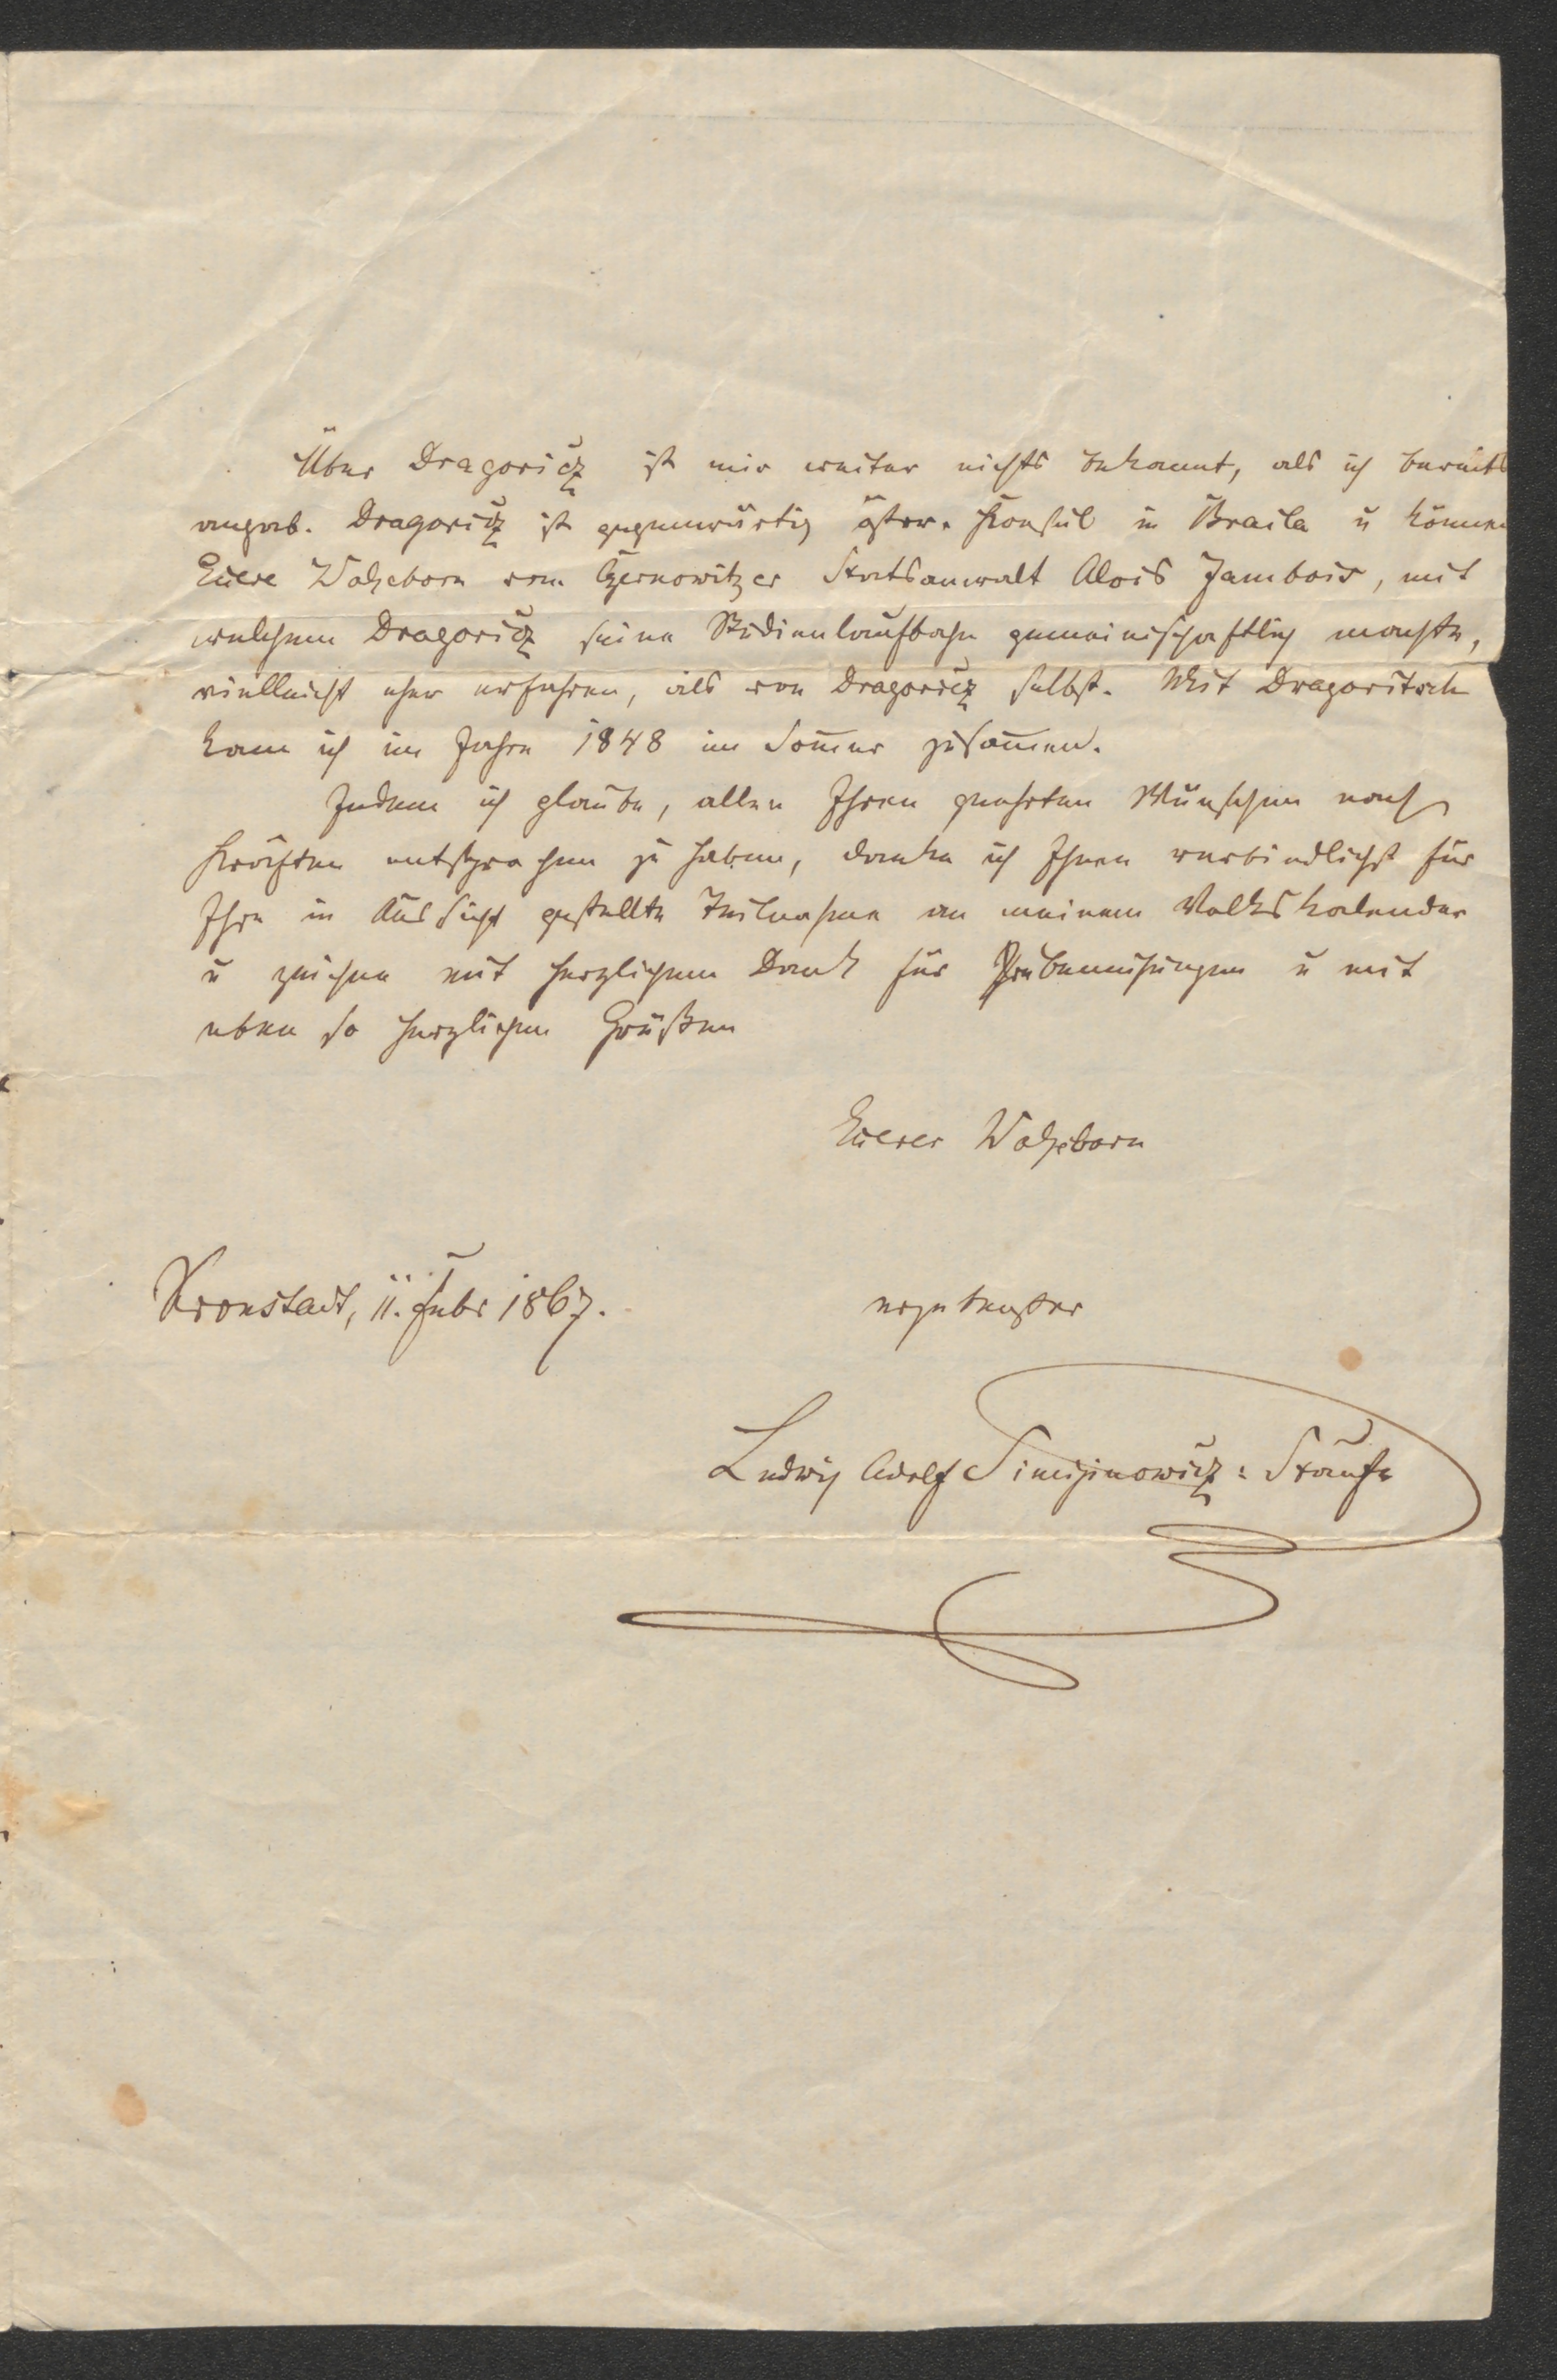 Über Dragoricz ist mir weiter nichts bekannt, als ich bereits
angab. Dragoricz ist gegenwärtig österr. Konsul in Braila u können
Euere Wolgeborn vom Czernowitzer Statsanwalt Alois Jambois, mit
welchem Dragoricz seine Studienlaufbahn gemeinschaftlich machte,
vielleicht eher erfahren, als von Dragoricz selbst. Mit Dragoritsch
kam ich im Jahre 1848 im Som̄er zusam̄en.
Indem ich glaube, allen Ihren geehrten Wünschen nach
Kräften entsprochen zu haben, danke ich Ihnen verbindlichst für
Ihre in Aussicht gestellte Teilnahme an meinem Volkskalender
u zeichne mit herzlichem Dank für Ihre Bemühungen u mit
eben so herzlichen Grüßen
Euerer Wolgeborn
Kronstadt, 11. Febr 1867.
ergebenster
Ludwig Adolf Simiginowicz-Staufe